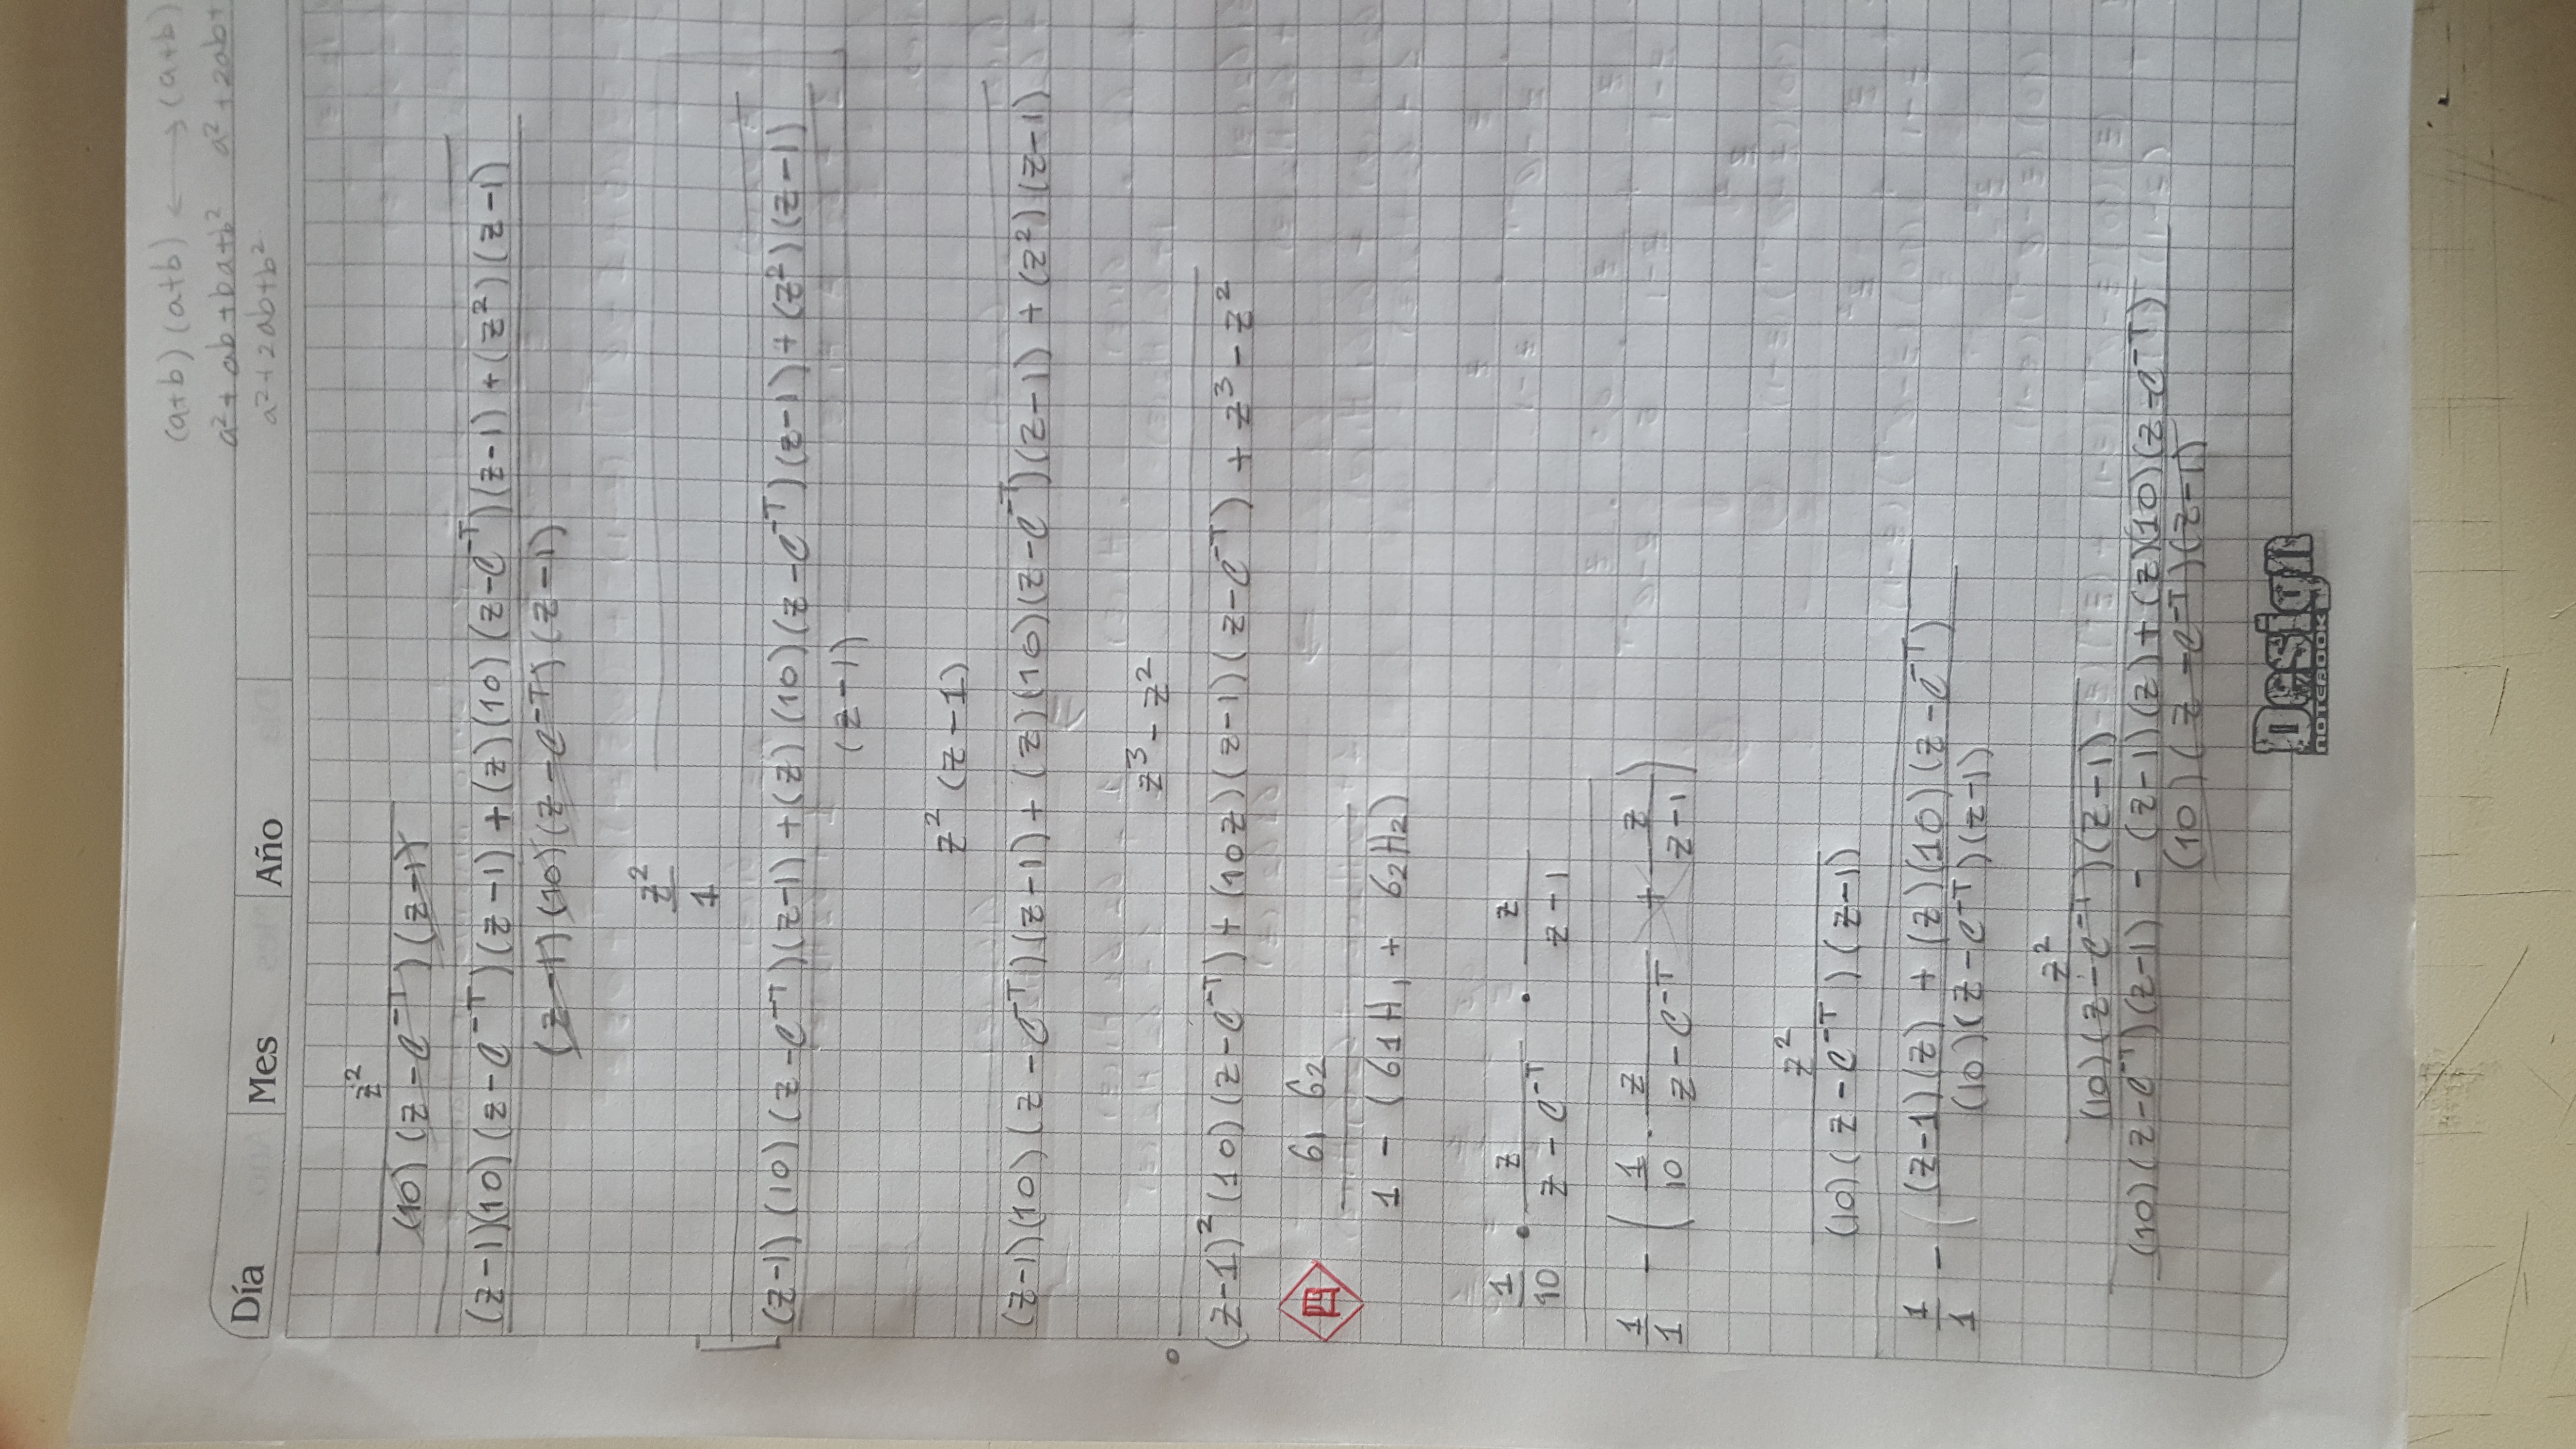 (a+b) (a+b) ⟷ (a+b)
a² + ab + ba + b² a² + 2ab +
a² + 2ab + b²
Día Mes Año
z²
(10) (z - e^-T) (z-1)
(z-1)(10) (z - e^-T) (z-1) + (z) (10) (z - e^-T) (z-1) + (z²) (z-1)
(z-1) (10) (z - e^-T) (z-1)
z²
1
(z-1) (10) (z - e^-T) (z-1) + (z) (10) (z - e^-T) (z-1) + (z²) (z-1)
(z-1)
z² (z-1)
(z-1)(10) (z - e^-T) (z-1) + (z)(10)(z - e^-T) (z-1) + (z²) (z-1)
z³ - z²
(z-1)² (10) (z - e^-T) + (10z) (z-1) (z - e^-T) + z³ - z²
四 G1 G2
1 - (G1H1 + G2H2)
1/10 • z/(z - e^-T) • z/(z-1)
1/1 - (1/10 · z/(z - e^-T) + z/(z-1))
z²
(10) (z - e^-T) (z-1)
1/1 - ((z-1)(z) + (z)(10)(z - e^-T)
(10)(z - e^-T)(z-1)
z²
(10)(z - e^-T)(z-1)
(10)(z - e^-T)(z-1) - (z-1)(z) + (z)(10)(z - e^-T)
(10) (z - e^-T)(z-1)
Design
NOTEBOOK